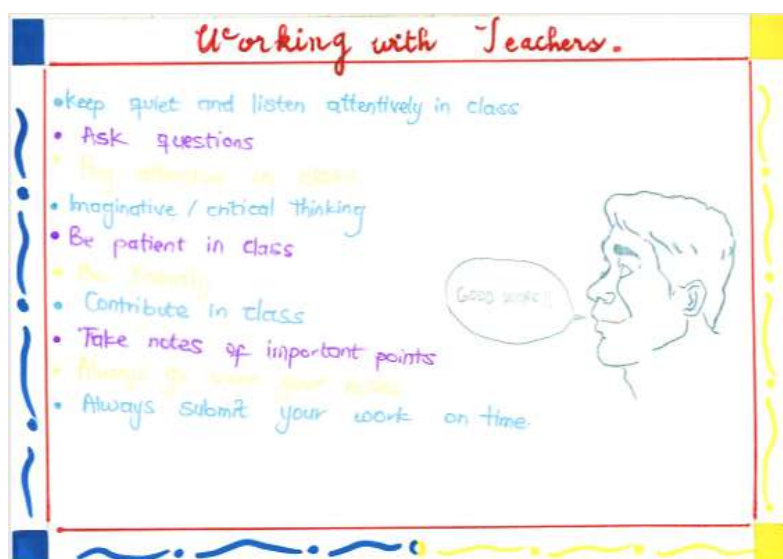 Working with Teachers.
•Keep quiet and listen attentively in class
• Ask questions
• Pay attention in class
• Imaginative / critical thinking
• Be patient in class
• Be friendly
• Contribute in class
GOOD WORK!!
• Take notes of important points
• Always go over your notes
• Always submit your work on time.